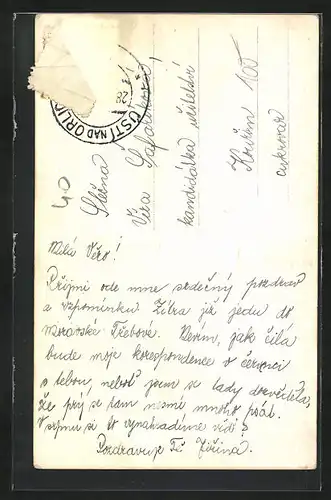 ÚSTÍ NAD ORLICÍ
28
40
Slečna
Věra
kandidátka učitelství
Kuřim 100
cukrovar
Milá Věro!
Přijmi ode mne srdečný pozdrav
a vzpomínku. Zítra již jedu do
Moravské Třebové. Nevím, jak čilá
bude moje korespondence v červenci
s tebou, neboť jsem se tady dozvěděla,
že prý se tam nesmí mnoho psát.
V srpnu si to vynahradíme viď?
Pozdravuje Tě Jiřina.